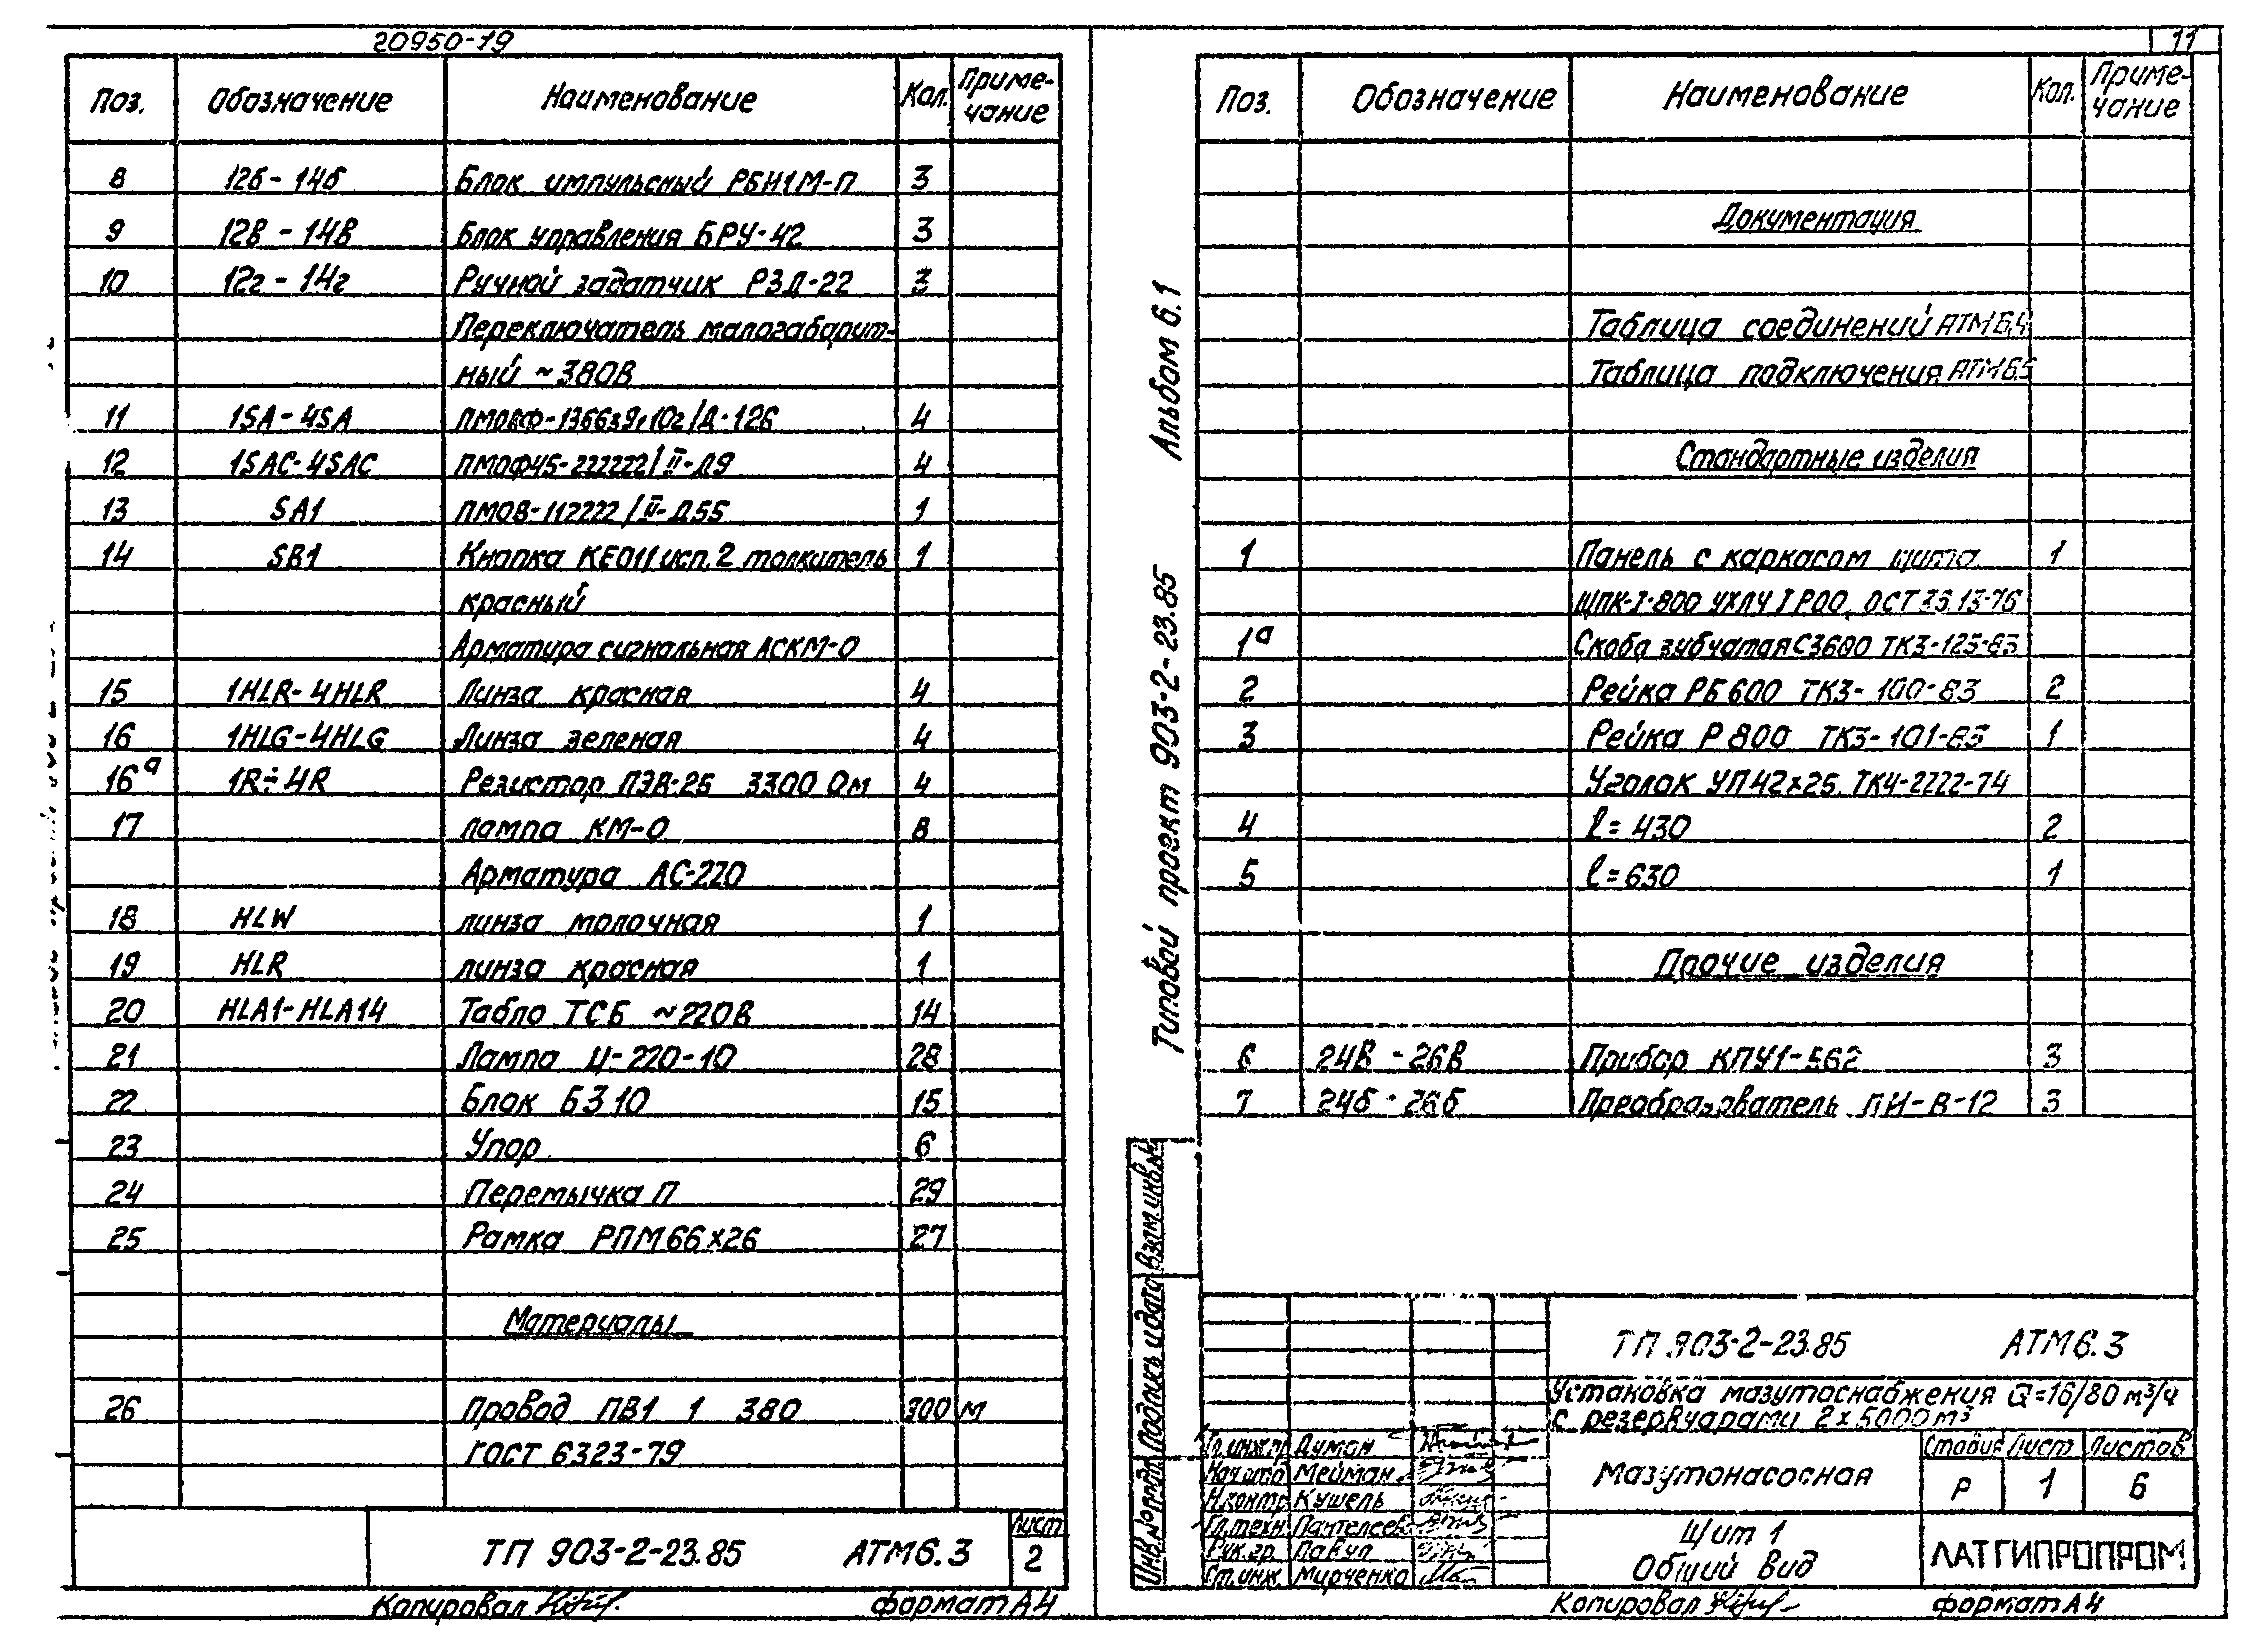 20950-19
Поз. Обозначение Наименование Кол. Приме-
чание
8 12б - 14б Блок импульсный РБИ1М-П 3
9 12в - 14в Блок управления БРУ-42 3
10 12г - 14г Ручной задатчик РЗД-22 3
Переключатель малогабарит-
ный ~380В
11 1SA - 4SA 4
12 1SAC-4SAC ПМОФ45-222222/II-Д9 4
13 SA1 ПМОВ-112222/II-Д55 1
14 SB1 Кнопка КЕ011 исп.2 толкатель 1
красный
Арматура сигнальная АСКМ-0
15 1HLR-4HLR Линза красная 4
16 1HLG-4HLG Линза зеленая 4
16а 1R÷4R Резистор ПЭВ-25 3300 Ом 4
17 лампа КМ-0 8
Арматура АС-220
18 HLW линза молочная 1
19 HLR линза красная 1
20 HLA1-HLA14 Табло ТСБ ~220В 14
21 Лампа Ц-220-10 28
22 Блок БЗ10 15
23 Упор 6
24 Перемычка П 29
25 Рамка РПМ66х26 27
Материалы
26 Провод ПВ1 1 380 300 м
ГОСТ 6323-79
ТП 903-2-23.85 АТМ6.3 Лист
2
Копировал формат А4
11
Альбом 6.1
Типовой проект 903-2-23.85
Поз. Обозначение Наименование Кол. Приме-
чание
Документация
Таблица соединений АТМ6.4
Таблица подключения АТМ6.5
Стандартные изделия
1 Панель с каркасом щита 1
ЩПК-I-800 УХЛ4 IP00, ОСТ 36.13-76
1а Скоба зубчатая СЗ600 ТК3-125-83
2 Рейка РБ600 ТК3-100-83 2
3 Рейка Р800 ТК3-101-83 1
Уголок УП42х25 ТК4-2222-74
4 ℓ=430 2
5 ℓ=630 1
Прочие изделия
6 24в - 26в Прибор КПУ1-562 3
7 24б - 26б Преобразователь ПИ-В-12 3
Взам.инв.№
Подпись и дата
Инв.№ подл
ТП 903-2-23.85 АТМ6.3
Установка мазутоснабжения Q=16/80 м³/ч
с резервуарами 2х5000м³
Гл.инж.пр Думан
Нач.отд Мейман
Н.контр Кушель
Гл.техн. Пантелеев
Рук.гр. Павул
Ст.инж. Мирченко
Мазутонасосная
Стадия Лист Листов
Р 1 6
Щит 1
Общий вид
ЛАТГИПРОПРОМ
Копировал формат А4